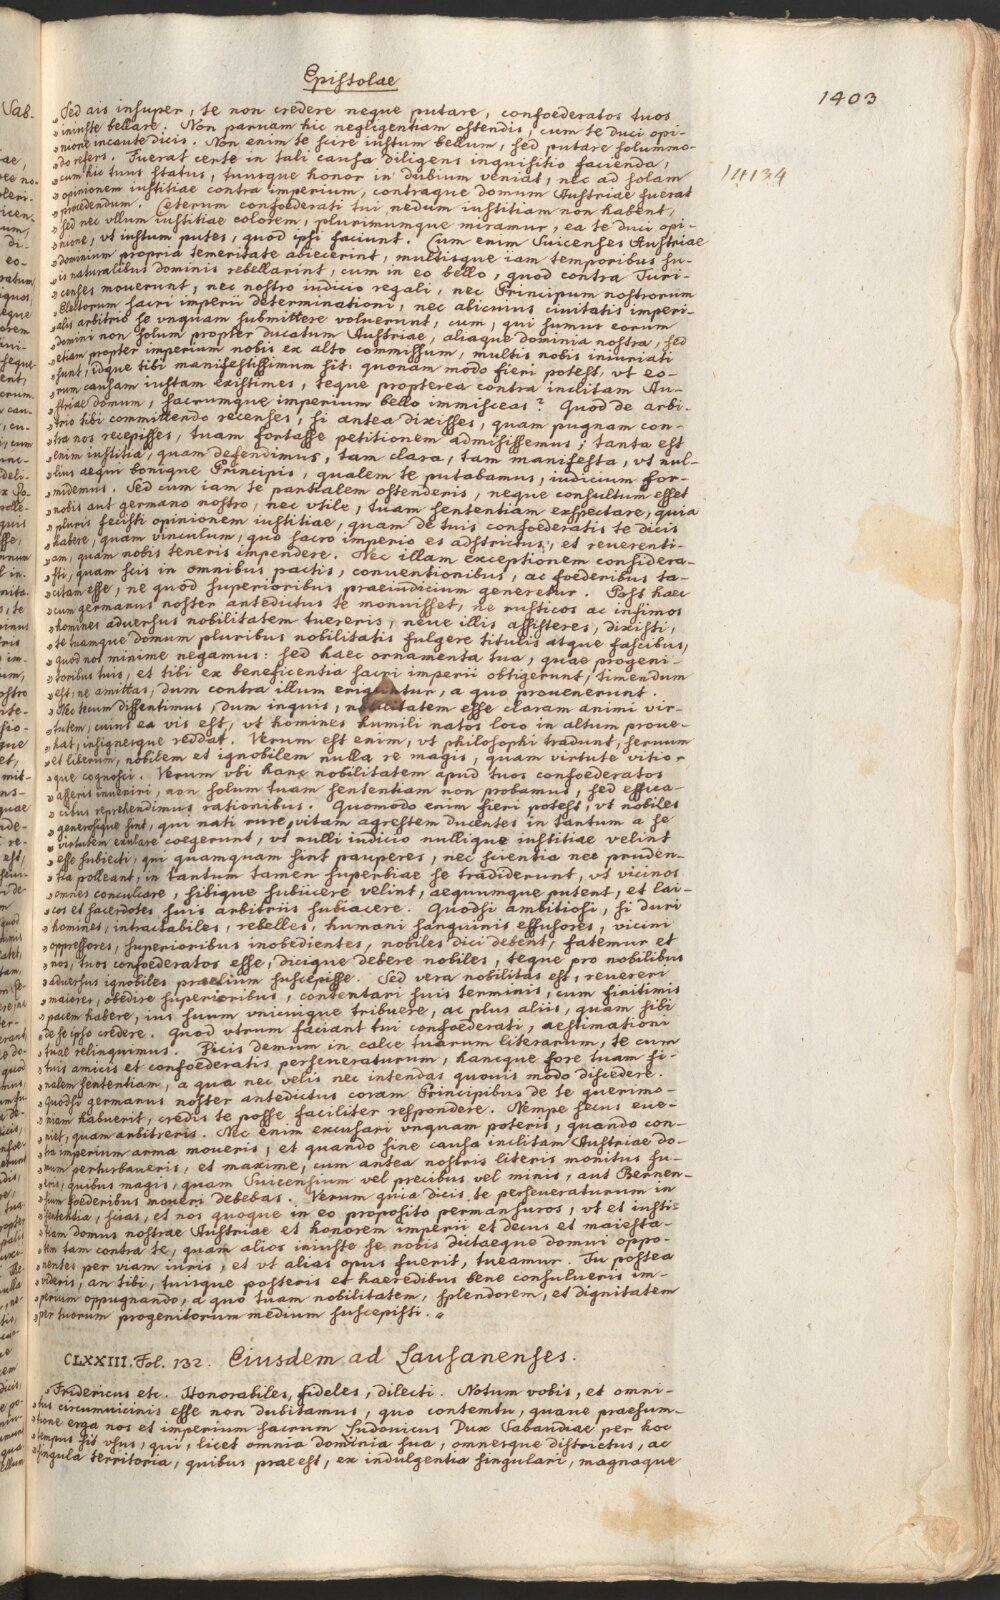 Epistolae
1403
14134
„Sed ais insuper, te non credere neque putare, confoederatos tuos
„iniuste bellare. Non paruam hic negligentiam ostendis, cum te duci opi-
„nione incaute dicis. Non enim te scire iustum bellum, sed putare solummo-
„do refers. Fuerat certe in tali causa diligens inquisitio facienda,
„cum hic tuus status, tuusque honor in dubium veniat, nec ad solam
„opinionem iustitiae contra imperium, contraque domum Austriae fuerat
„procedendum. Ceterum confoederati tui nedum iustitiam non habent,
„sed nec vllum iustitiae colorem, plurimumque miramur, ea te duci opi-
„nione, vt iustum putes, quod ipsi faciunt. Cum enim Suicenses Austriae
„dominium propria temeritate abiecerint, multisque iam temporibus su-
„is naturalibus dominis rebellarint, cum in eo bello, quod contra Turi-
„censes mouerunt, nec nostro iudicio regali, nec Principum nostrorum
„Electorum sacri imperii determinationi, nec alicuius ciuitatis imperi-
„alis arbitrio se vnquam submittere voluerunt, cum, qui sumus eorum
„domini non solum propter ducatum Austriae, aliaque dominia nostra, sed
„etiam propter imperium nobis ex alto commissum, multis nobis iniuriati
„sunt, idque tibi manifestissimum sit: quonam modo fieri potest, vt eo-
„rum causam iustam existimes, teque propterea contra inclitam Au-
„striae domum, sacrumque imperium bello immisceas? Quod de arbi-
„trio tibi committendo recenses, si antea dixisses, quam pugnam con-
„tra nos recepisses, tuam fortasse petitionem admisissemus, tanta est
„enim iustitia, quam defendimus, tam clara, tam manifesta, vt nul-
„lius aequi bonique Principis, qualem te putabamus, iudicium for-
„midemus. Sed cum iam te partialem ostenderis, neque consultum esset
„nobis aut germano nostro, nec vtile, tuam sententiam exspectare, quia
„pluris fecisti opinionem iustitiae, quam de tuis confoederatis te dicis
„habere, quam vinculum, quo sacro imperio es adstrictus, et reuerenti-
„am, quam nobis teneris impendere. Nec illam exceptionem considera-
„sti, quam scis in omnibus pactis, conuentionibus, ac foederibus ta-
„citam esse, ne quod superioribus praeiudicium generetur. Post haec
„cum germanus noster antedictus te monuisset, ne rusticos ac infimos
„homines aduersus nobilitatem tuereris, neue illis assisteres, dixisti,
„te tuamque domum pluribus nobilitatis fulgere titulis atque fascibus,
„quod nos minime negamus: sed haec ornamenta tua, quae progeni-
„toribus tuis, et tibi ex beneficentia sacri imperii obtigerunt, timendum
„est, ne amittas, dum contra illum eriguntur, a quo prouenerunt.
„Nec tecum dissentimus, dum inquis, nobilitatem esse claram animi vir-
„tutem, cuius ea vis est, vt homines humili natos loco in altum proue-
„hat, insignesque reddat. Verum est enim, vt philosophi tradunt, seruum
„et liberum, nobilem et ignobilem nulla re magis, quam virtute vitio-
„que cognosci. Verum vbi hanc nobilitatem apud tuos confoederatos
„asseris inueniri, non solum tuam sententiam non probamus, sed effica-
„cibus reprehendimus rationibus. Quomodo enim fieri potest, vt nobiles
„generosique sint, qui nati rure, vitam agrestem ducentes in tantum a se
„virtutem exulare coegerunt, vt nulli iudicio nullique iustitiae velint
„esse subiecti, qui quamquam sint pauperes, nec scientia nec pruden-
„tia polleant, in tantum tamen superbiae se tradiderunt, vt vicinos
„omnes conculcare, sibique subiicere velint, aequumque putent, et lai-
„cos et sacerdotes suis arbitriis subiacere. Quodsi ambitiosi, si duri
„homines, intractabiles, rebelles, humani sanguinis effusores, vicini
„oppressores, superioribus inobedientes, nobiles dici debent, fatemur et
„nos, tuos confoederatos esse, dicique debere nobiles, teque pro nobilibus
„aduersus ignobiles praelium suscepisse. Sed vera nobilitas est, reuereri
„maiores, obedire superioribus, contentari suis terminis, cum finitimis
„pacem habere, ius suum vnicuique tribuere, ac plus aliis, quam sibi
„de se ipso credere. Quod vtrum faciant tui confoederati, aestimationi
„tuae relinquimus. Dicis demum in calce tuarum literarum, te cum
„tuis amicis et confoederatis perseueraturum, hancque fore tuam fi-
„nalem sententiam, a qua nec velis nec intendas quouis modo discedere.
„Quodsi germanus noster antedictus coram Principibus de te querimo-
„niam habuerit, credis te posse faciliter respondere. Nempe secus eue-
„niet, quam arbitreris. Nec enim excusari vnquam poteris, quando con-
„tra imperium arma moueris, et quando sine causa inclitam Austriae do-
„mum perturbaueris, et maxime, cum antea nostris literis monitus fu-
„eris, quibus magis, quam Suicensium vel precibus vel minis, aut Bernen-
„sium foederibus moueri debebas. Verum quia dicis te perseueraturum in
„sententia, scias, et nos quoque in eo proposito permansuros, vt et iusti-
„tiam domus nostrae Austriae et honorem imperii et decus et maiesta-
„tem tam contra te, quam alios iniuste se nobis dictaeque domui oppo-
„nentes per viam iuris, et vt alias opus fuerit, tueamur. Tu postea
„videris, an tibi, tuisque posteris et haeredibus bene consulueris im-
„perium oppugnando, a quo tuam nobilitatem, splendorem, et dignitatem
„per tuorum progenitorum medium suscepisti.„
CLXXIII. Fol. 132. Eiusdem ad Lausanenses.
„Fridericus etc. Honorabiles, fideles, dilecti. Notum vobis, et omni-
„bus circumuicinis esse non dubitamus, quo contemtu, quaue praesum-
„tione erga nos et imperium sacrum Ludouicus Dux Sabaudiae per hoc
„tempus sit vsus, qui, licet omnia dominia sua, omnesque districtus, ac
„singula territoria, quibus praeest, ex indulgentia singulari, magnaque